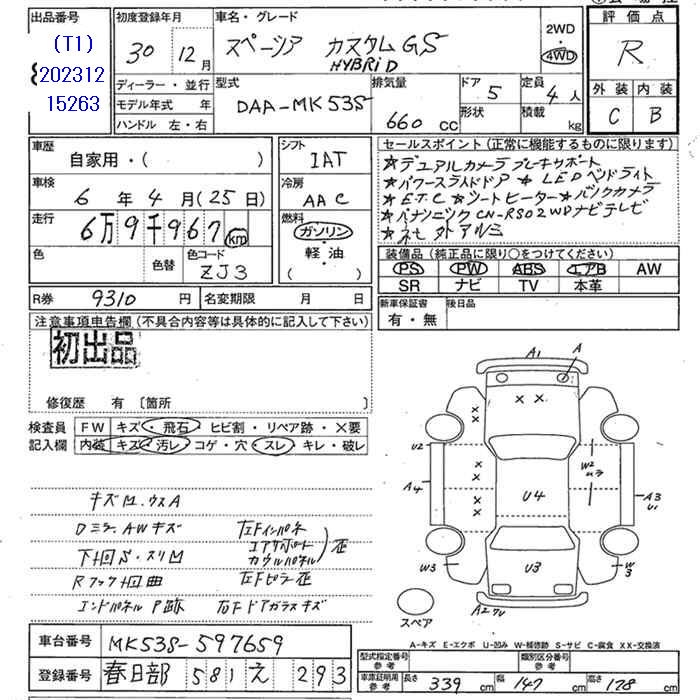 出品番号
(T1)
202312
15263
初度登録年月
30年 12月
ディーラー・並行
モデル年式 年
ハンドル 左・右
車名・グレード
スペーシア カスタムGS
HYBRID
2WD
4WD
型式
DAA-MK53S
排気量
660 cc
ドア
5
形状
定員
4人
積載
kg
評価点
R
外装 内装
C B
車歴
自家用・( )
車検
6年4月(25日)
走行
6万9千967km
色
色替
色コード
ZJ3
シフト
IAT
冷房
AAC
燃料
ガソリン
軽・油
( )
R券 9310円
名変期限 月 日
セールスポイント(正常に機能するものに限ります)
★デュアルカメラブレーキサポート
★パワースライドドア ★LEDヘッドライト
★ETC ★シートヒーター ★バックカメラ
★パナソニック CN-RS02WDナビテレビ
★社外アルミ
装備品(純正品に限り○をつけてください)
PS PW ABS エアB AW
SR ナビ TV 本革
新車保証書
有・無
後日品
注意事項申告欄(不具合内容等は具体的に記入して下さい)
初出品
修復歴 有 〔箇所 〕
検査員
記入欄
FW キズ・飛石・ヒビ割・リペア跡・×要
内装 キズ・汚レ・コゲ・穴・スレ・キレ・破レ
キズM.ウスA
Dミラー AWキズ
下回S・スリM
Rフック凹曲
エンドパネルP跡
左Fインパネ
コアサポート
カウルパネル
歪
左Fピラー歪
右Fドアガラスキズ
A1
A
U2
A4
W2
ムラ
U4
A3
U1
W3
U3
W3
A2
スペア
A-キズ E-エクボ U-凹み W-補修跡 S-サビ C-腐食 XX-交換済
車台番号 MK53S-597659
登録番号 春日部 581 え 293
型式指定番号
参考
類別区分番号
参考
車庫証明用
参考
長さ 339cm
幅 147cm
高さ 178cm